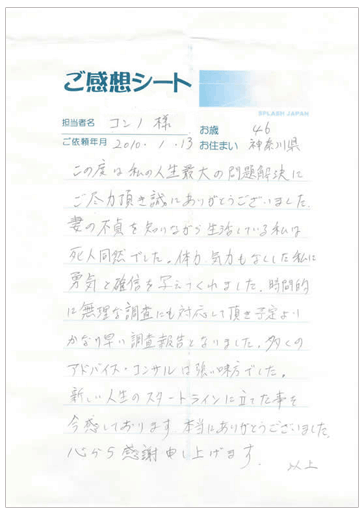 ご感想シート
SPLASH JAPAN
担当者名 コンノ 様
お歳 46
ご依頼年月 2010. 1. 13
お住まい 神奈川県
この度は私の人生最大の問題解決に
ご尽力頂き誠にありがとうございました。
妻の不貞を知りながら生活している私は
死人同然でした。体力、気力もなくした私に
勇気と確信を与えてくれました。時間的
に無理な調査にも対応して頂き予定より
かなり早い調査報告となりました。多くの
アドバイス・コンサルは強い味方でした。
新しい人生のスタートラインに立てた事を
今感じております。本当にありがとうございました。
心から感謝申し上げます。
以上